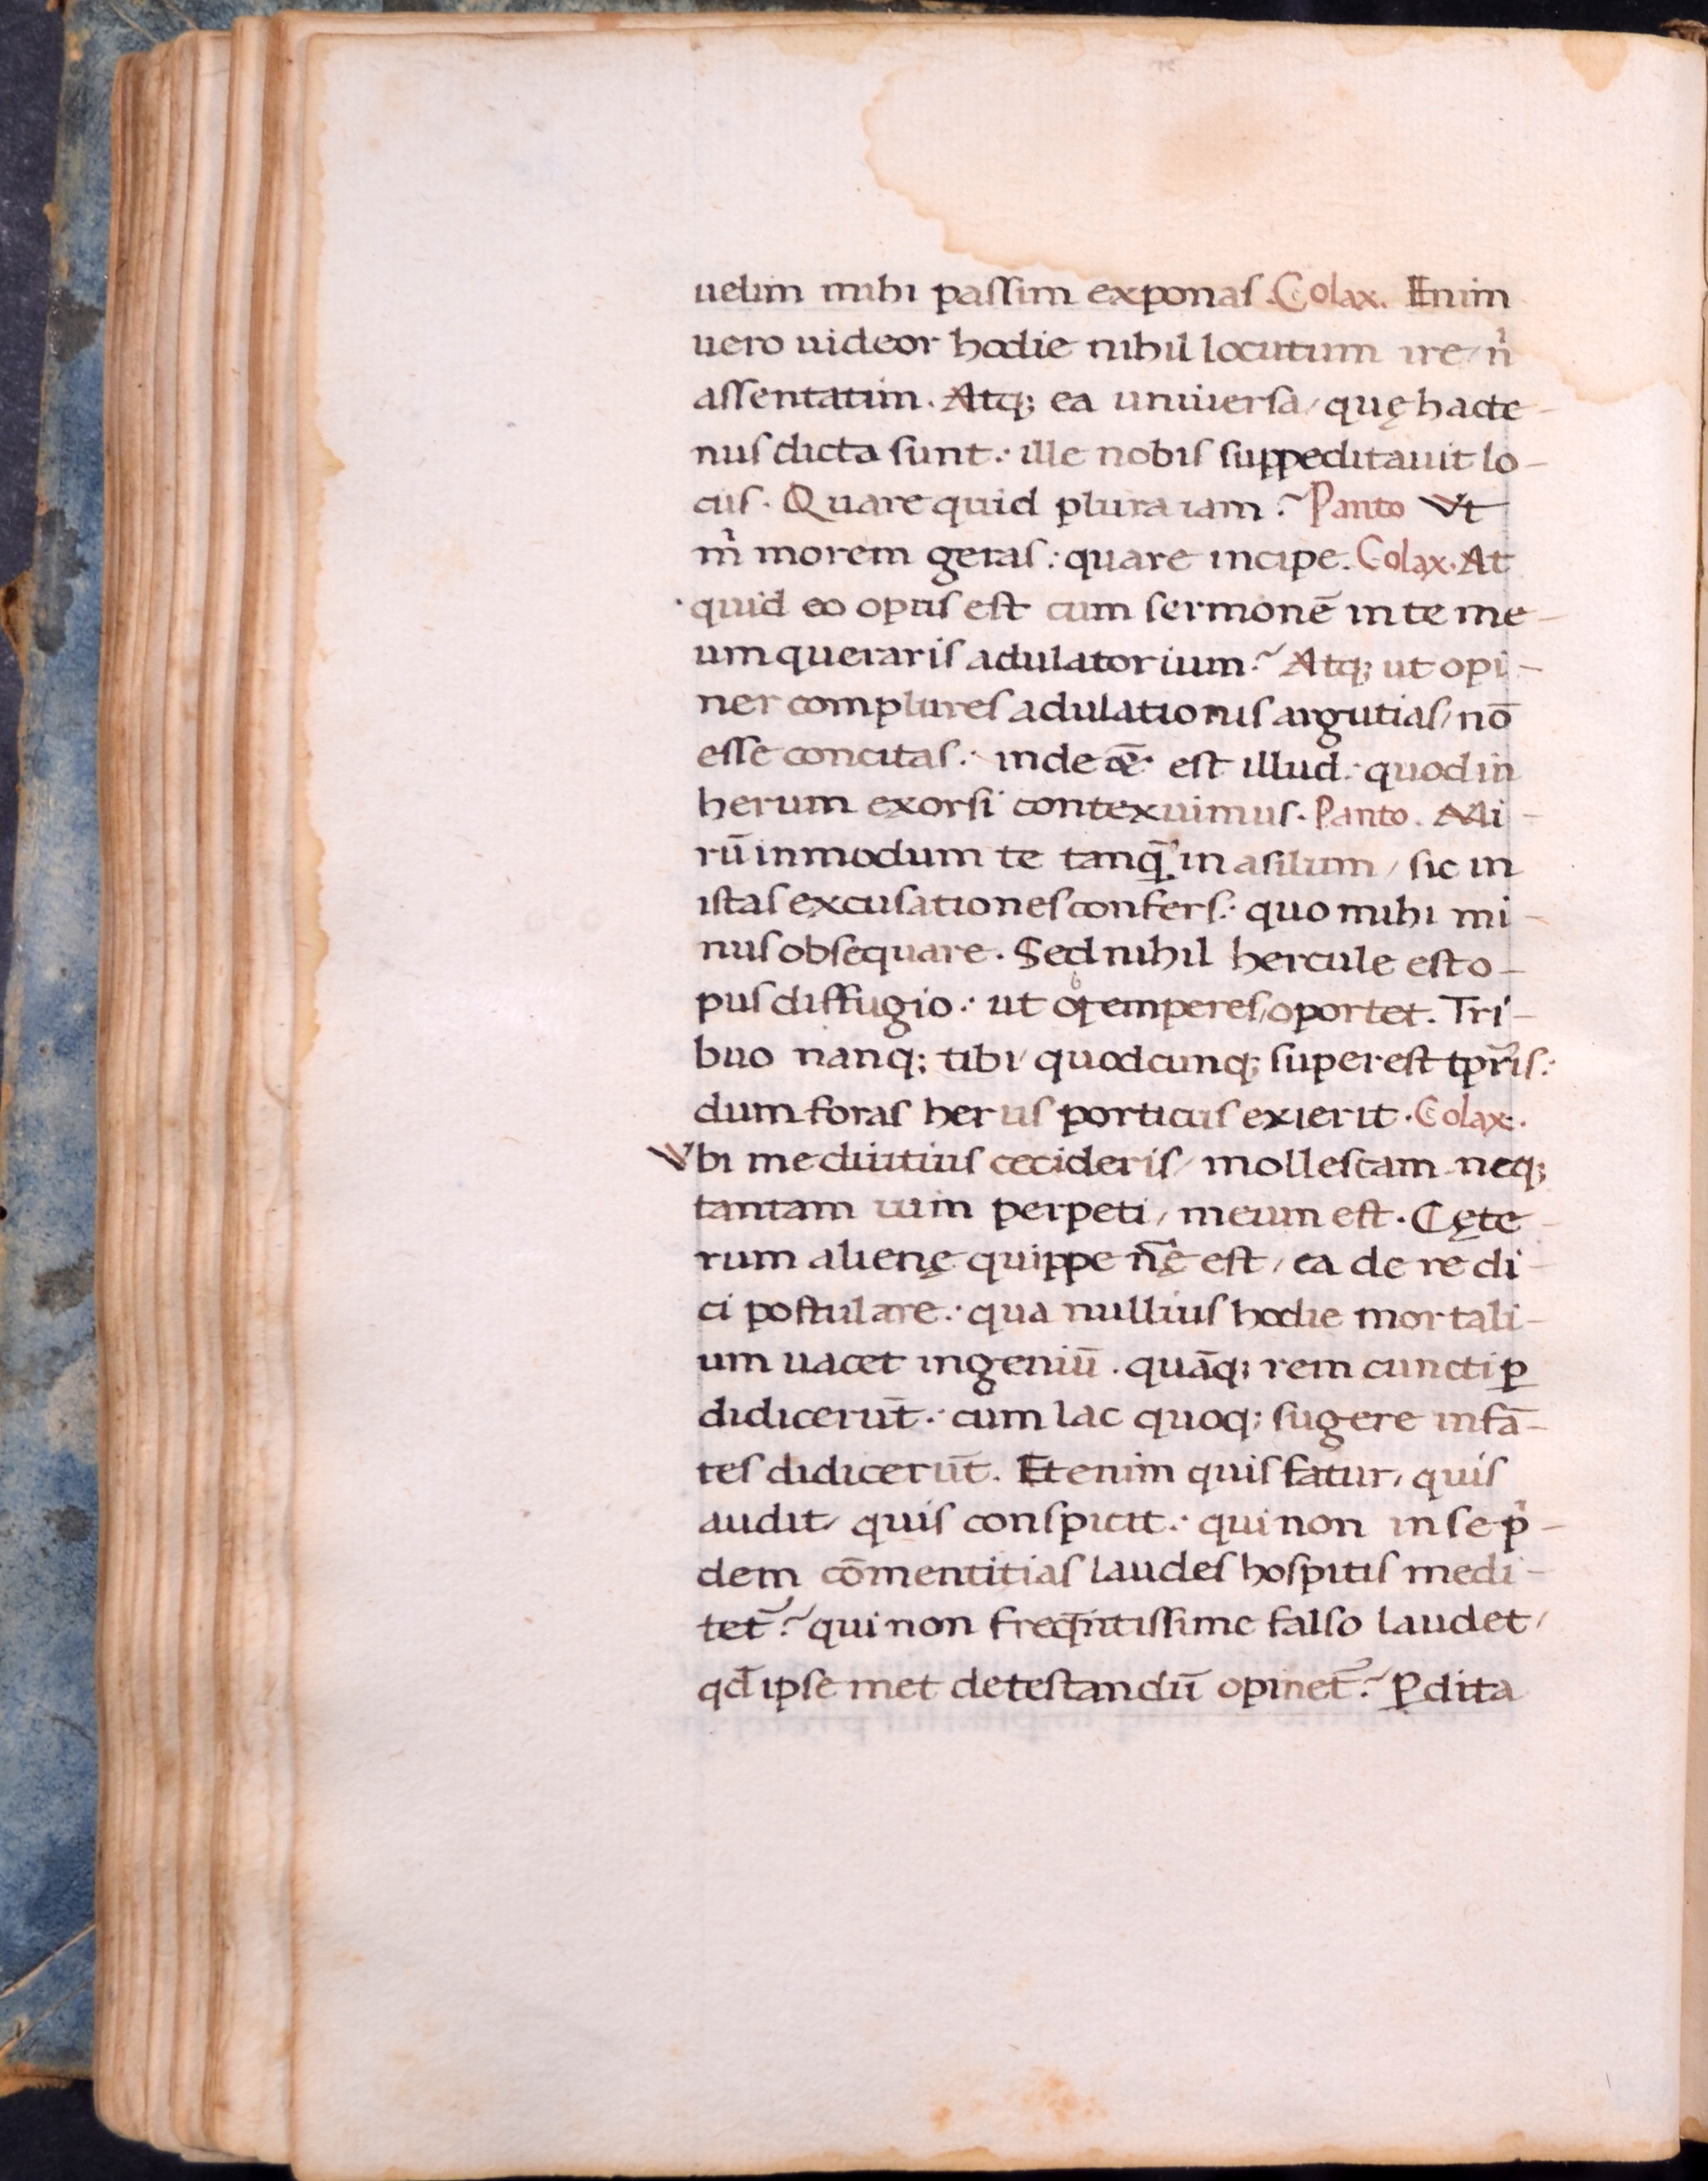 uelim mihi passim exponas. Colax. Enim
uero uideor hodie nihil locutum ire/ nͥ
assentatim. Atq; ea uniuersa/ quę hacte-
nus dicta sunt: ille nobis suppeditauit lo-
cus. Quare quid plura iam? Panto Vt
mͥ morem geras: quare incipe. Colax. At
quid eo opus est cum sermonē in te me-
um queraris adulatorium? Atq; ut opi-
ner complures adulationis argutias/ nō
esse concitas: inde est illud: quod in
herum exorsi contexuimus. Panto. Mi-
rū in modum te tanq̄ in asilum/ sic in
istas excusationes confers: quo mihi mi-
nus obsequare. Sed nihil hercule est o-
pus diffugio: ut oƀtemperes/ oportet. Tri-
buo nanq; tibi/ quodcunq; superest tp̄ris:
dum foras herus porticus exierit. Colax.
Vbi me diutius cecideris/ mollescam neq;
tantam uim perpeti/ meum est. Cęte-
rum alienę quippe n̄ę est/ ea de re di-
ci postulare: qua nullius hodie mortali-
um uacet ingeniū. quāq; rem cuncti ꝑ
didicerūt: cum lac quoq; sugere infā-
tes didicerūt. Etenim quis fatur, quis
audit/ quis conspicit: qui non in se pͥ-
dem cōmentitias laudes hospitis medi-
tet᷑? qui non freq̄ntissime falso laudet/
qđ ipse met detestandū opinet᷑? ꝑdita